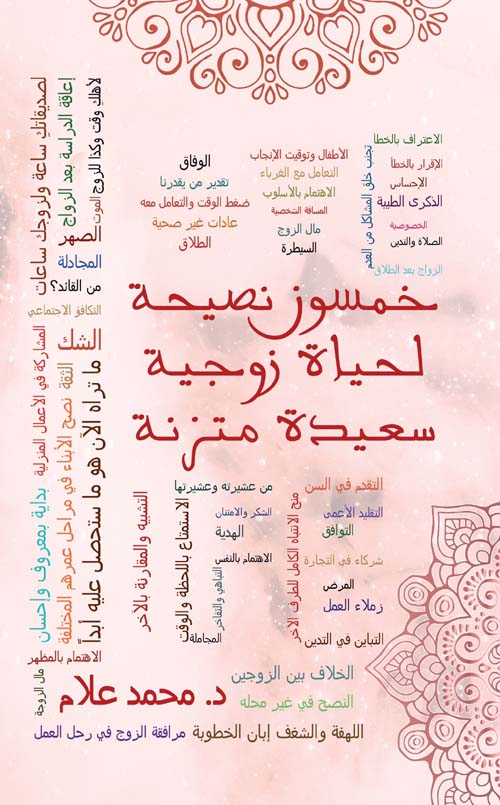 الاعتراف بالخطأ
الإقرار بالخطأ
الإحساس
الذكرى الطيبة
الخصوصية
الصلاة والتدين
الزواج بعد الطلاق
تجنب خلق المشاكل من العدم
الأطفال وتوقيت الإنجاب
التعامل مع الغرباء
الاهتمام بالأسلوب
المسافة الشخصية
مال الزوج
السيطرة
الوفاق
تقدير من يقدرنا
ضغط الوقت والتعامل معه
عادات غير صحية
الطلاق
لأهلكِ وقت وكذا للزوج
الموت
إعاقة الدراسة بعد الزواج
لصديقاتكِ ساعة ولزوجك ساعات
الصهر
المجادلة
من القائد؟
التكافؤ الاجتماعي
الشك
خمسون نصيحة
لحياة زوجية
سعيدة متزنة
ما تراه الآن هو ما ستحصل عليه أبداً
الثقة
نصح الأبناء في مراحل عمرهم المختلفة
المشاركة في الأعمال المنزلية
بداية بمعروف وإحسان
الاهتمام بالمظهر
مال الزوجة
التقدم في السن
التقليد الأعمى
التوافق
شركاء في التجارة
المرض
زملاء العمل
التباين في التدين
منح الانتباه الكامل للطرف الآخر
من عشيرته وعشيرتها
الشكر والامتنان
الهدية
الاهتمام بالنفس
التباهي والتفاخر
المجاملة
الاستمتاع باللحظة والوقت
التشبيه والمقارنة بالآخر
الخلاف بين الزوجين
د. محمد علام
النصح في غير محله
اللهفة والشغف إبان الخطوبة
مرافقة الزوج في رحل العمل